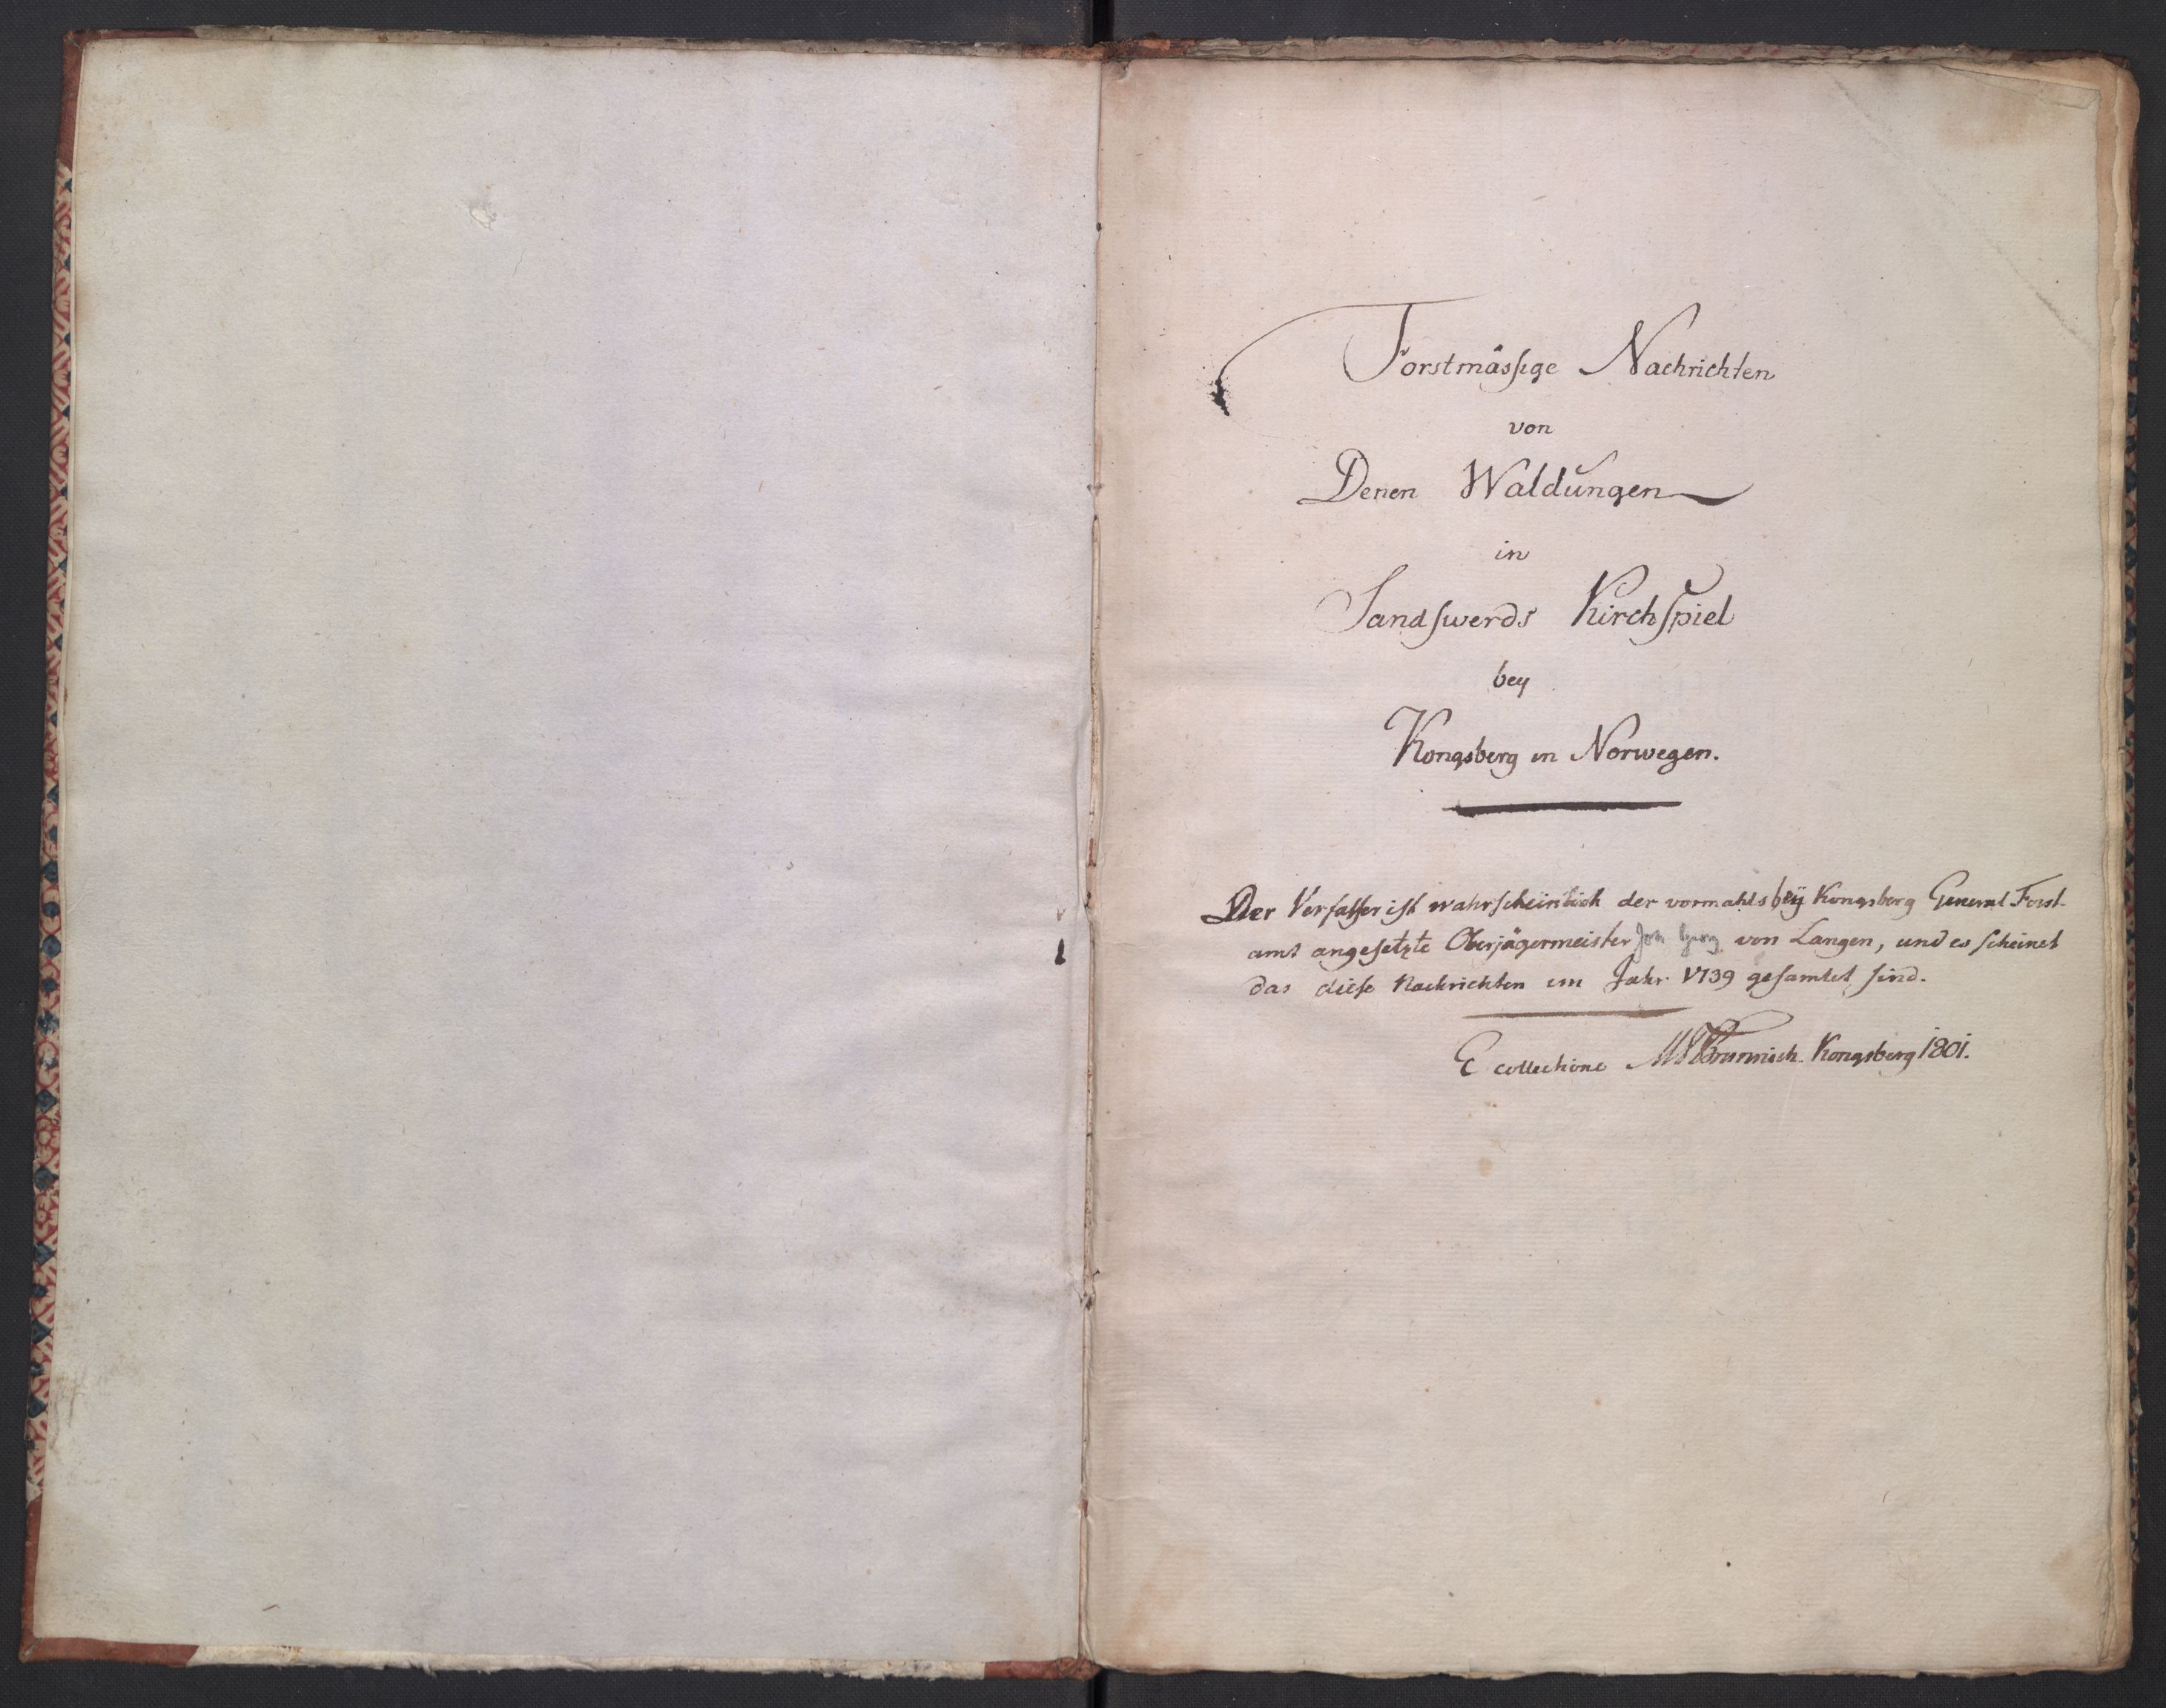 Forstmässige Nachrichten
von
Denen Waldungen
in
Sandswerds Kirchspiel
bey
Kongsberg in Norwegen.
Der Verfasser ist wahrscheinlich der vormahls beÿ Kongsberg General Forst-
amt angesetzte Oberjägermeister Joh Georg von Langen, und es scheinet
das diese Nachrichten im Jahr 1739 gesamlet sind.
E collectione MTBrunnich. Kongsberg 1801.